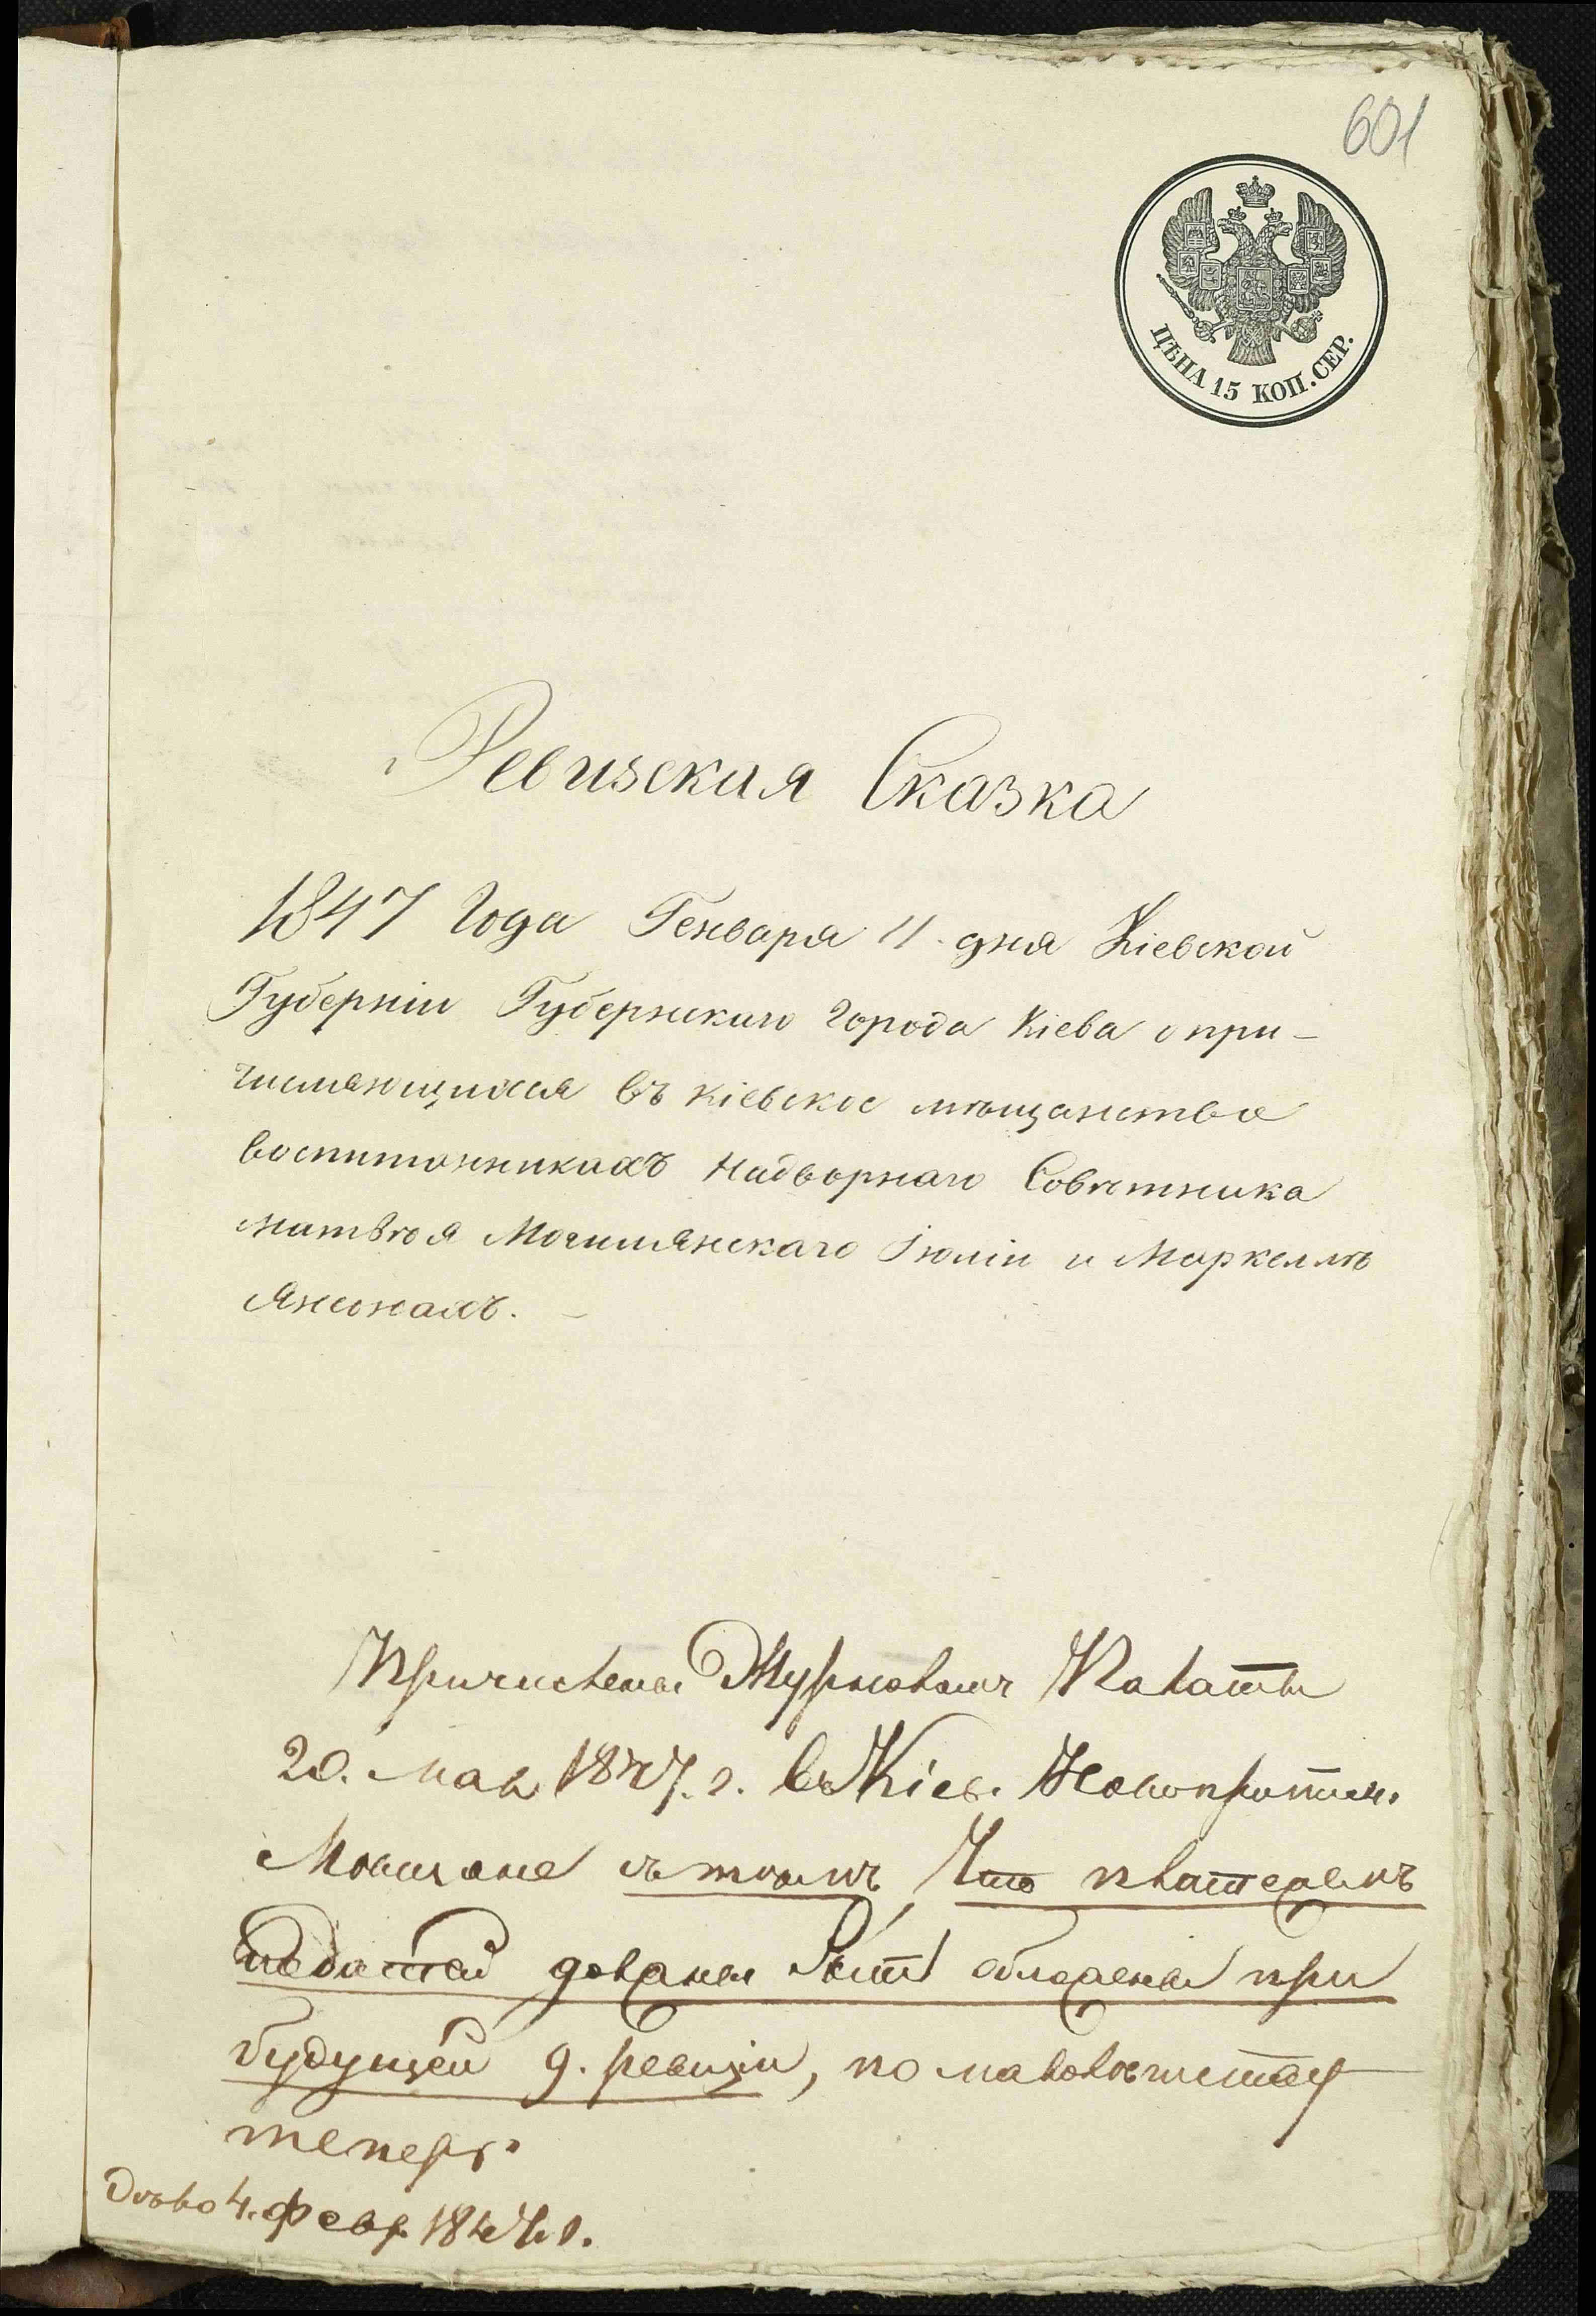 601
ЦѢНА 15 КОП. СЕР.
Ревизская Сказка
1847 Года Генваря 11 дня Кіевской
Губерніи Губернскаго Города Кіева о при-
числяющихся въ Кіевское мѣщанство
воспитанникахъ Надворнаго Совѣтника
Матвѣя Могилянскаго Іюліи и Маркеллѣ
Янсонахъ. –
Причислены Журналомъ Палаты
20. мая 1847. г. въ Кіев.
Мѣщане съ тѣмъ, Что платежемъ
податей должны быть обложены при
будущей 9. ревизіи, по малолѣтству
теперь.
Дѣло 4. Февр. 1847 г.